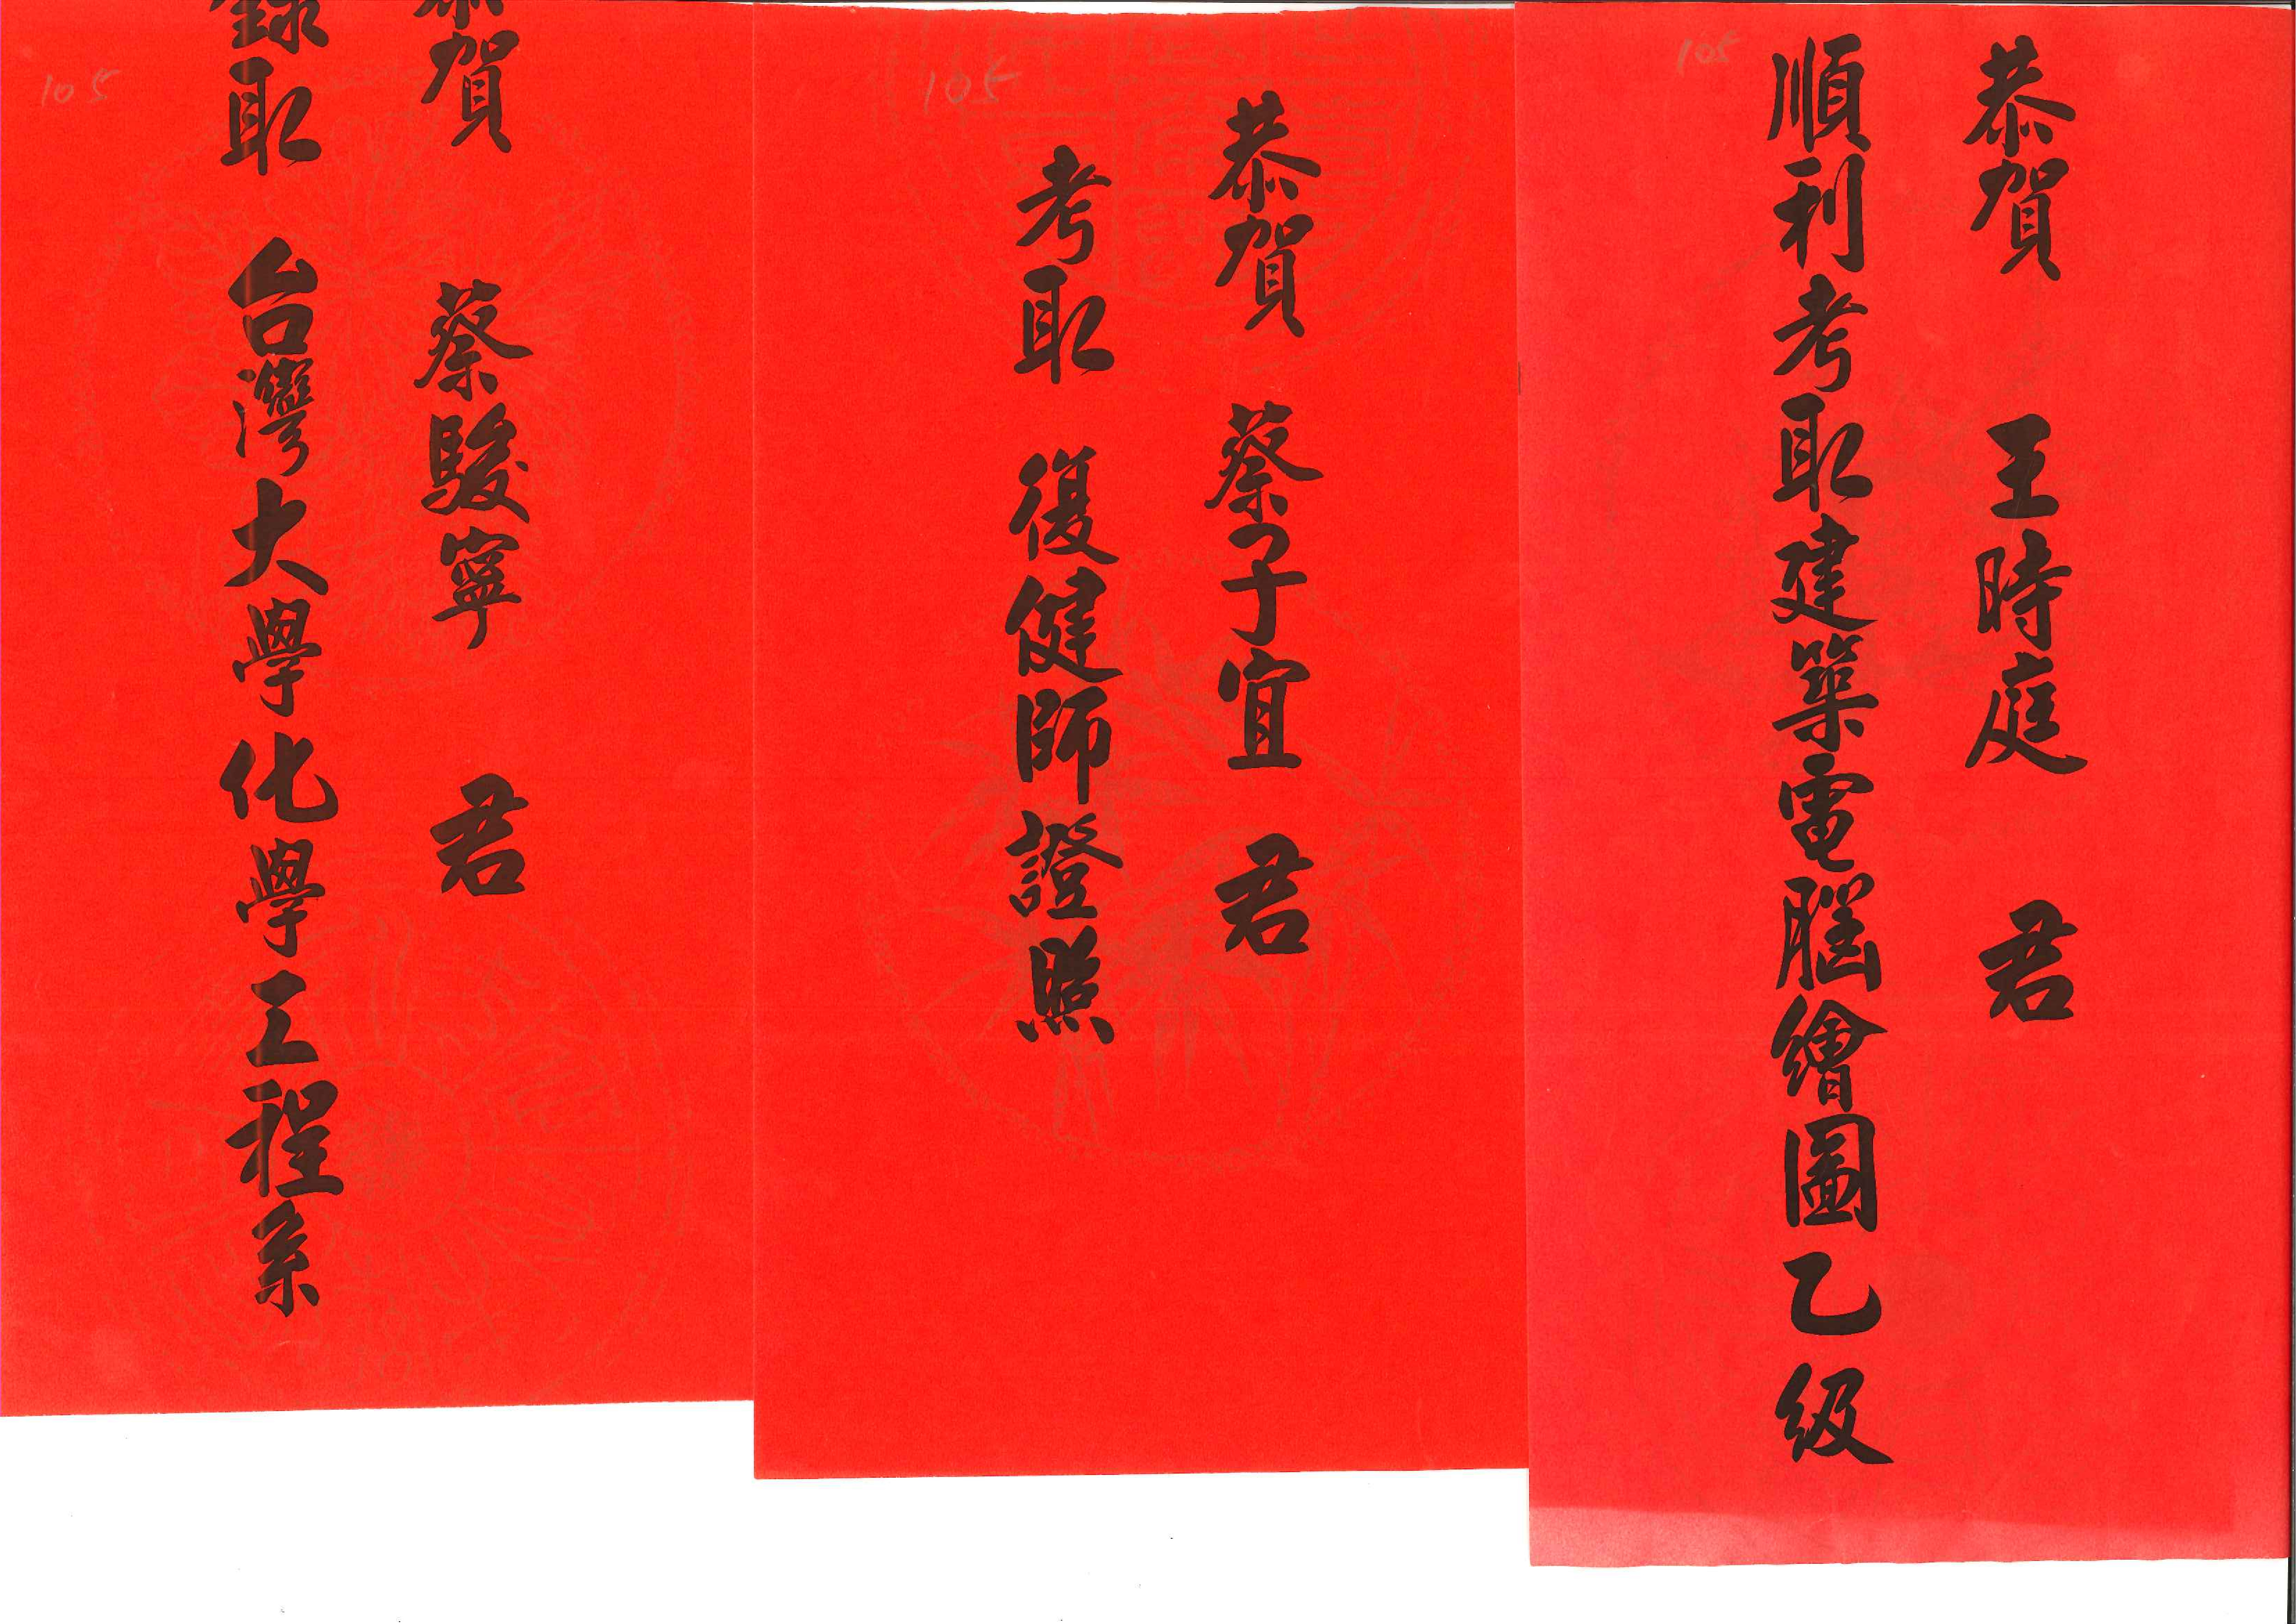 105
恭賀 王時庭 君
順利考取建築電腦繪圖乙級
105
恭賀 蔡子宜 君
考取 復健師證照
105
恭賀 蔡駿寧 君
錄取 台灣大學化學工程系